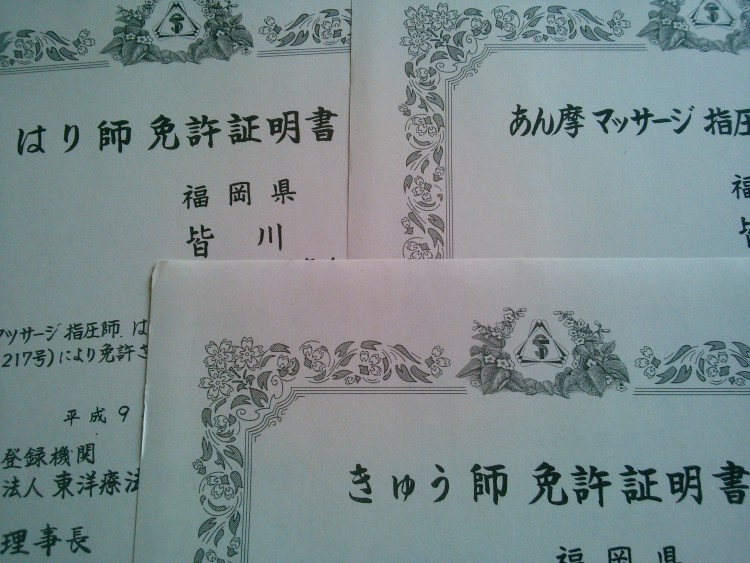 はり師 免許証明書
福岡県
皆川
マッサージ 指圧師、は
217号)により免許さ
平成9
登録機関
法人 東洋療法
理事長
あん摩 マッサージ 指圧
福
皆
きゅう師 免許証明書
福岡県